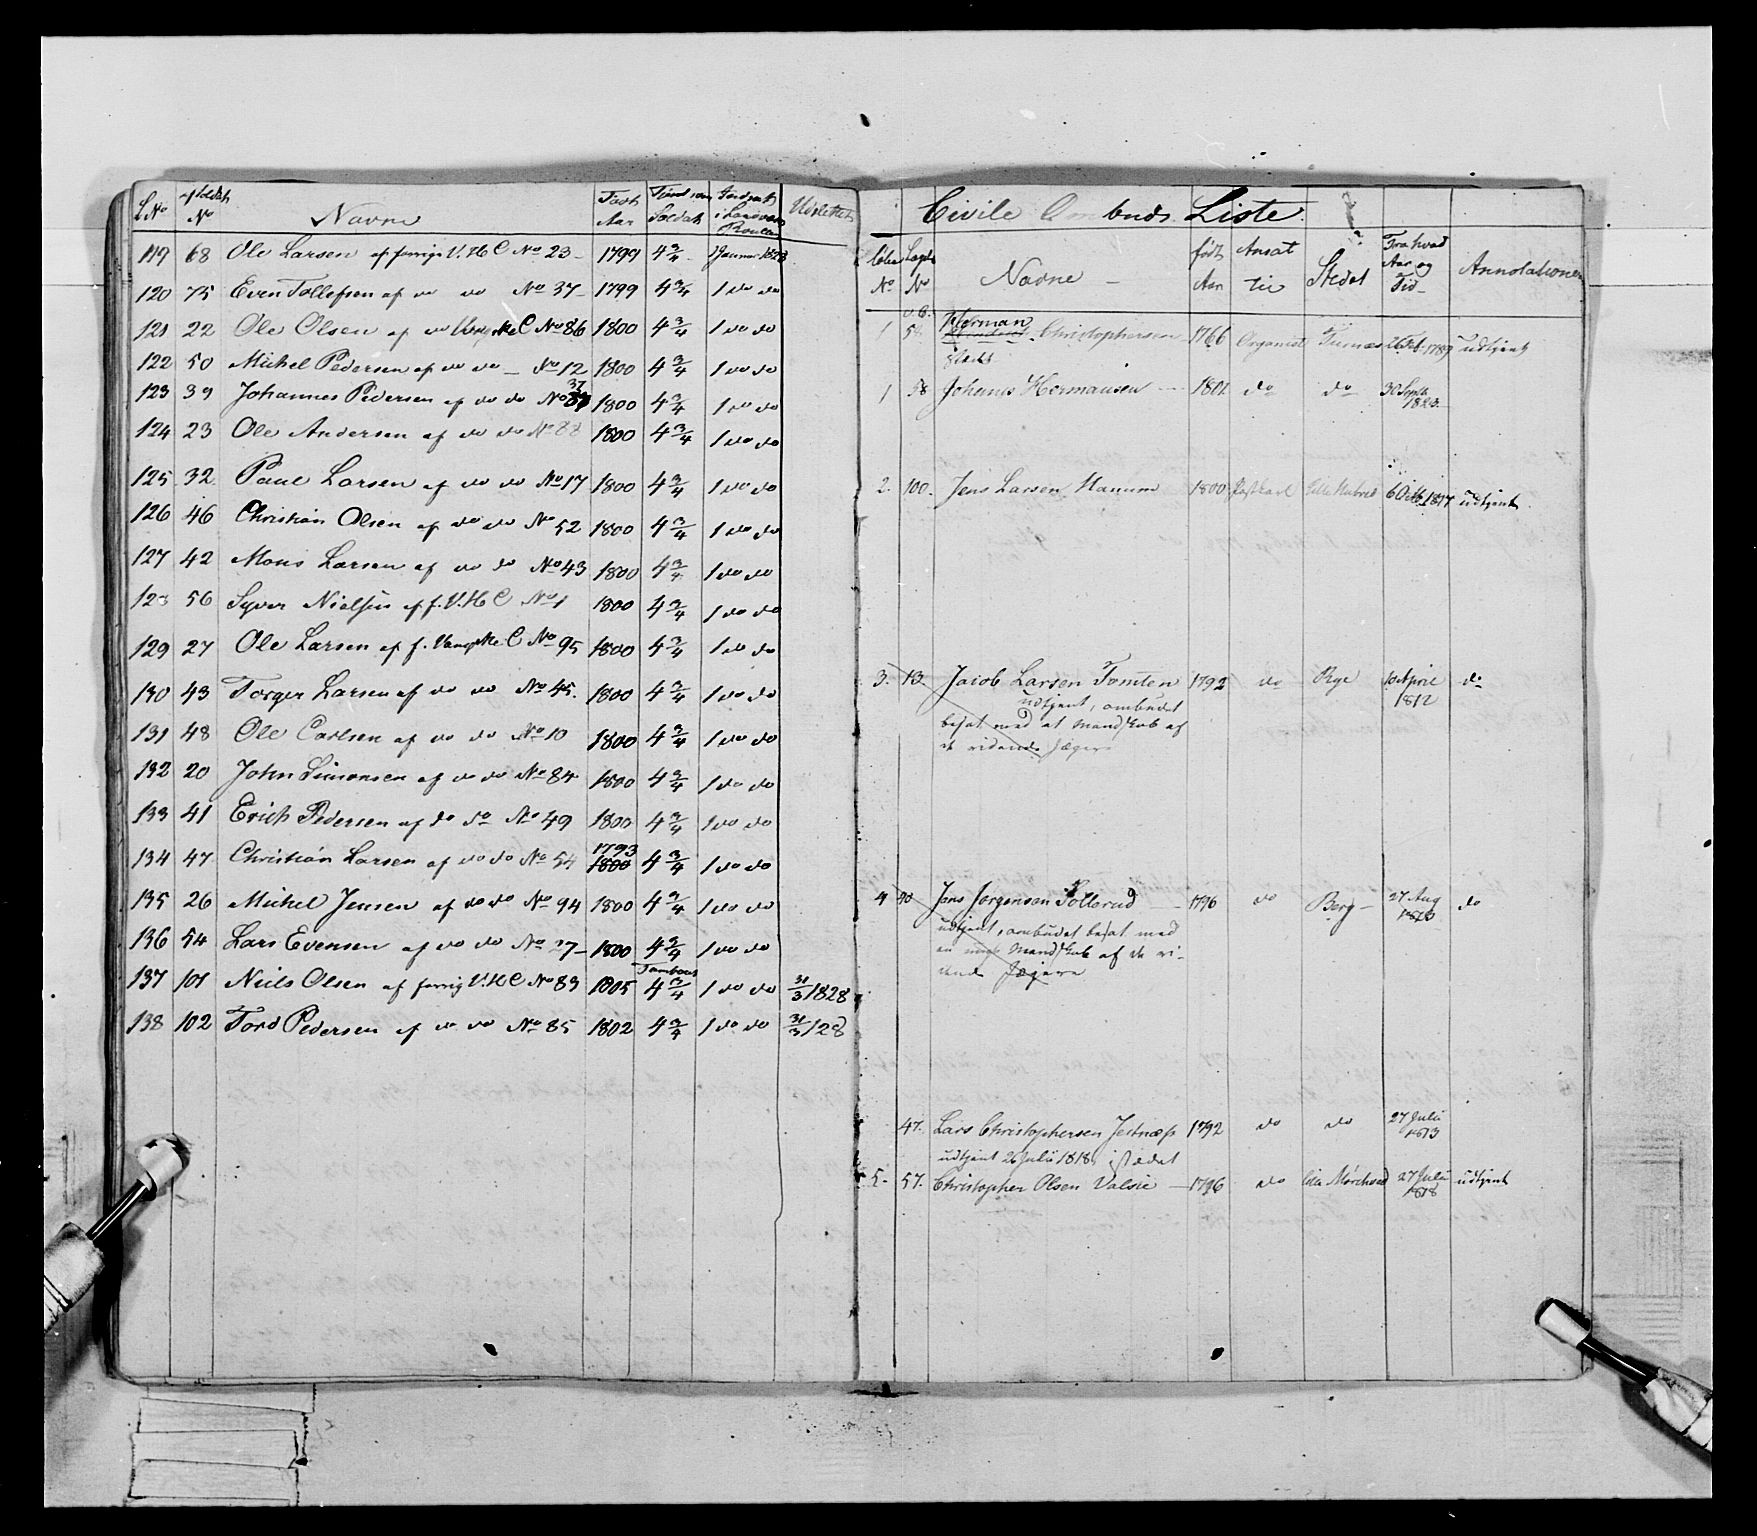 L No af Soldat No Navne Født Aar Tient som Soldat Indsat i Landværns Roullen Udslettet
119 68 Ole Larsen af forrige V.H.C No 23 - 1799 4 3/4 1 Januar 1828
120 75 Even Tollefsen af do do No 37 - 1799 4 3/4 1 do do
121 22 Ole Olsen af do C No 86 1800 4 3/4 1 do do
122 50 Mickel Pedersen af do do - No 12 1800 4 3/4 1 do do
123 39 Johannes Pedersen af do do No 37 1800 4 3/4 1 do do
124 23 Ole Andersen af do do No 88 1800 4 3/4 1 do do
125 32 Paul Larsen af do do No 17 1800 4 3/4 1 do do
126 46 Christian Olsen af do do No 52 1800 4 3/4 1 do do
127 42 Mons Larsen af do do No 43 1800 4 3/4 1 do do
128 56 Syver Nielsen af f. V.H.C No 1 1800 4 3/4 1 do do
129 27 Ole Larsen af f. Vangske C No 95 1800 4 3/4 1 do do
130 43 Torger Larsen af do do No 45. 1800 4 3/4 1 do do
131 48 Ole Carlsen af do do No 10 1800 4 3/4 1 do do
132 20 John Simonsen af do do No 84 1800 4 3/4 1 do do
133 41 Erich Pedersen af do do No 49 1800 4 3/4 1 do do
134 47 Christian Larsen af do do No 54 1793 1800 4 3/4 1 do do
135 26 Mickel Jensen af do do No 94 1800 4 3/4 1 do do
136 54 Lars Evensen af do do No 27 - 1800 4 3/4 1 do do
137 101 Niels Olsen af forrig V.H.C No 83 1805 Tambour 4 3/4 1 do do 31/3 1828
138 102 Tord Pedersen af do do No 85 1802 4 3/4 1 do do 31/3 128
Civile Ombuds Liste.
No Lægds No Navne - født Aar Ansat til Stedet Fra hvad Aar og Tid - Annotationer
1 58 Herman Christophersen 1766 Organist Furnæs 26 Feb. 1789 udtjent
1 58 Johanes Hermansen - 1801 do do 30 Septb. 1823
2. 100. Jens Larsen Hanum 1800 Postkarl 6 Octb. 1817 udtjent
3. 13. Jacob Larsen Tomten 1792 do Rye 10 April 1812 do
udtjent, ombudet
besat med et Mandskab af
de ridende Jægere
4 40 Jens Jørgensen Sollerud - 1796 do Berg - 27 Aug 1813 do
udtjent, ombudet besat med
en ungt Mandskab af de ri-
dende Jægere
47. Lars Christophersen Jestnæs 1792 do do 27 Juli 1813
udtjent 26 Juli 1818, istedet
5. 57. Christopher Olsen Valsie - 1796 do Lille Mørchved 27 Juli 1818 udtjent